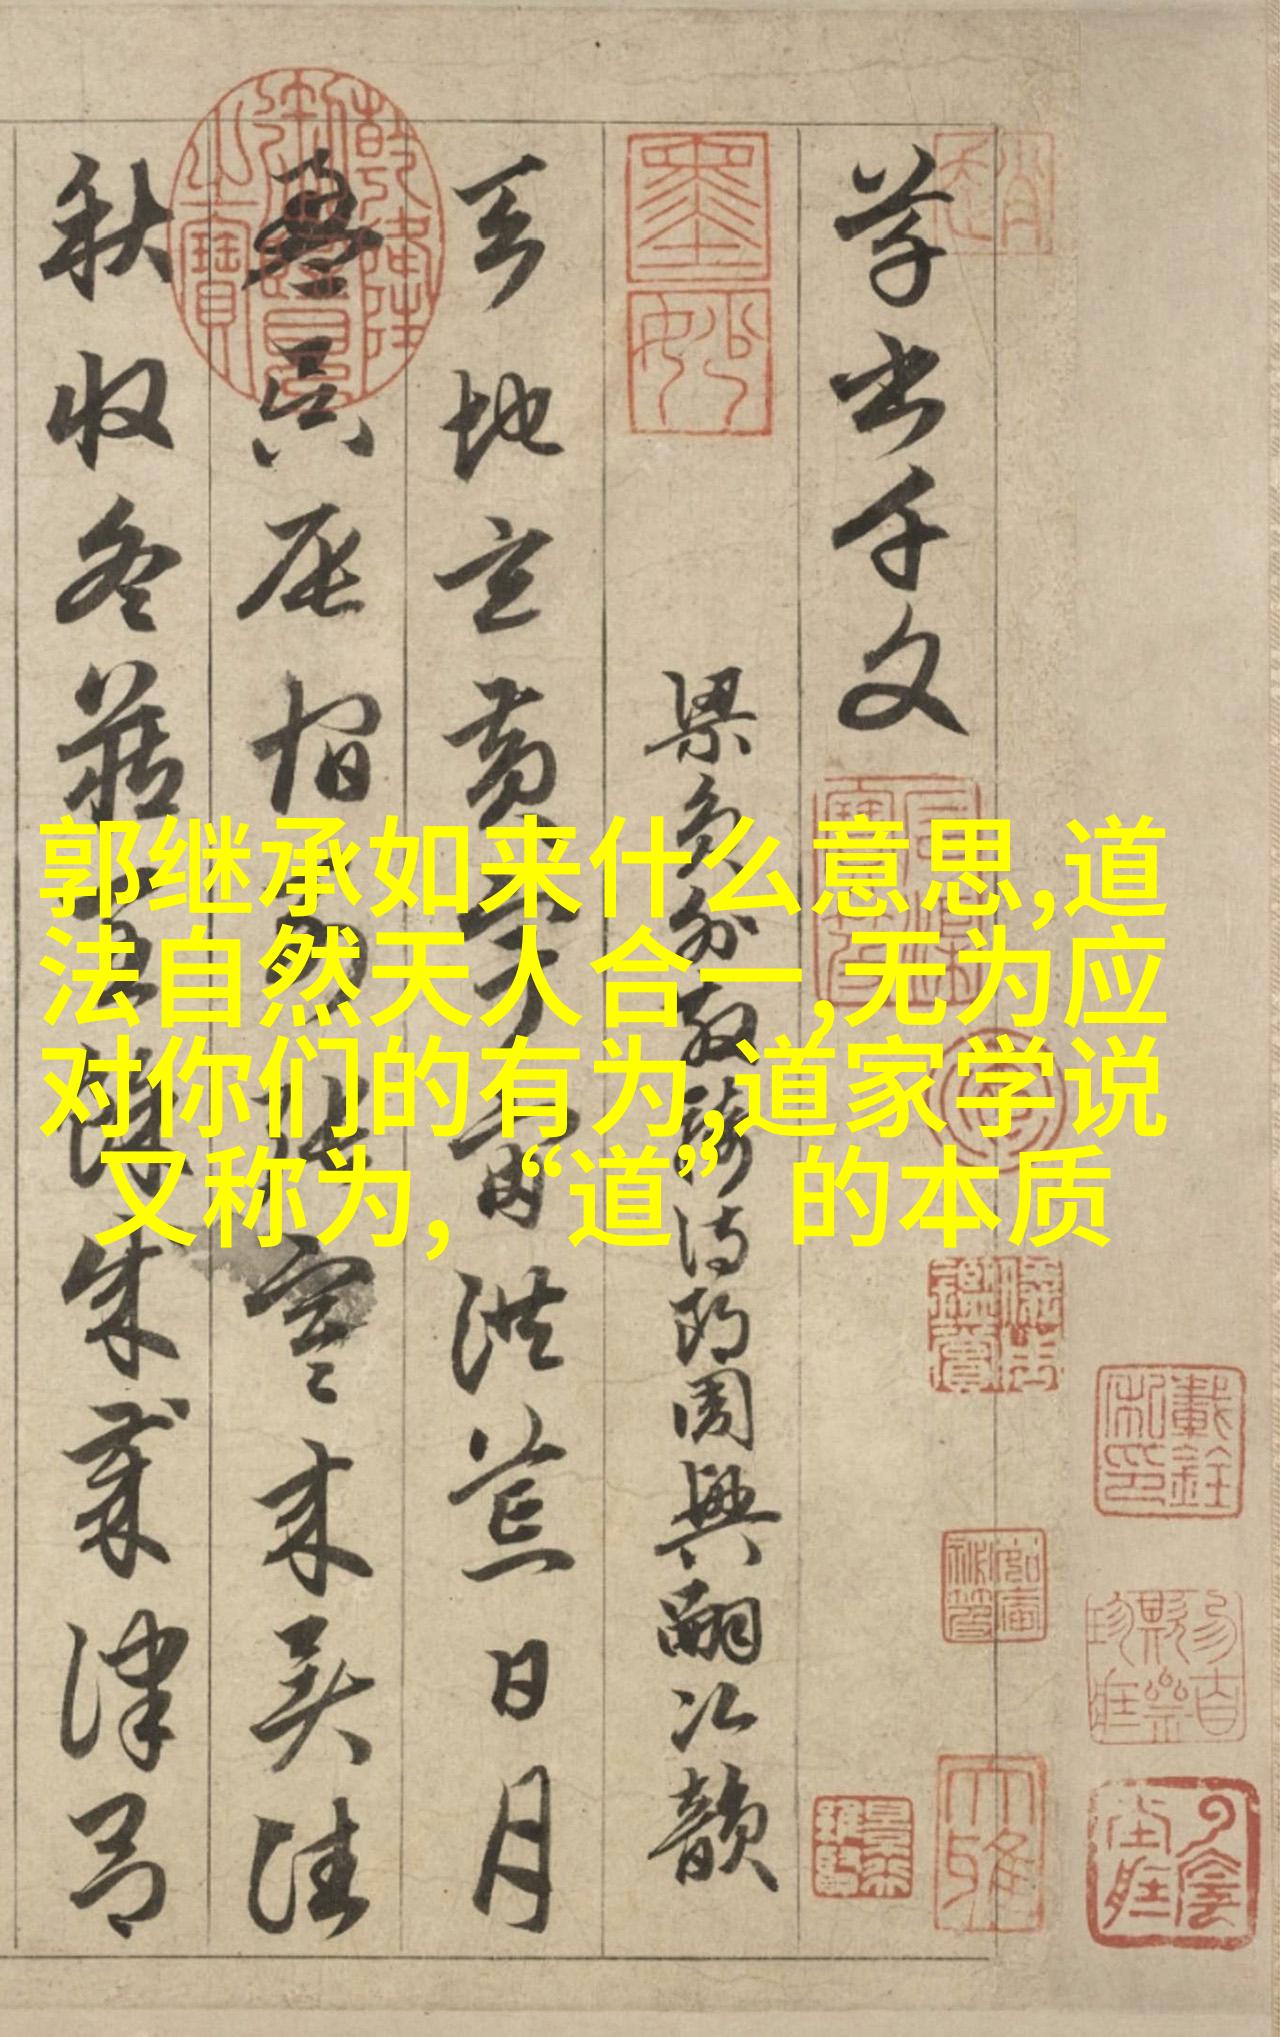 郭继承如来什么意思,道
法自然天人合一,无为应
对你们的有为,道家学说
又称为,“道”的本质
草书千文
梁员外散骑侍郎周兴嗣次韵
天地玄黄宇宙洪荒日月
盈昃辰宿列张寒来暑往
秋收冬藏闰余成岁律吕
墨妙
大雅